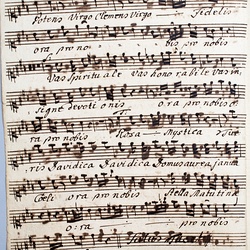 Potens Virgo Clemens Virgo — Fidelis
ora pro no - bis pro nobis
Vas Spirituale Vas honorabile Vas in
signe devotionis ora pro no
ra pro nobis Rosa — Mystica
ris Davidica Davidica Domus aurea foederis
Coeli ora pro nobis Stella Matutina
o - ra pro nobis